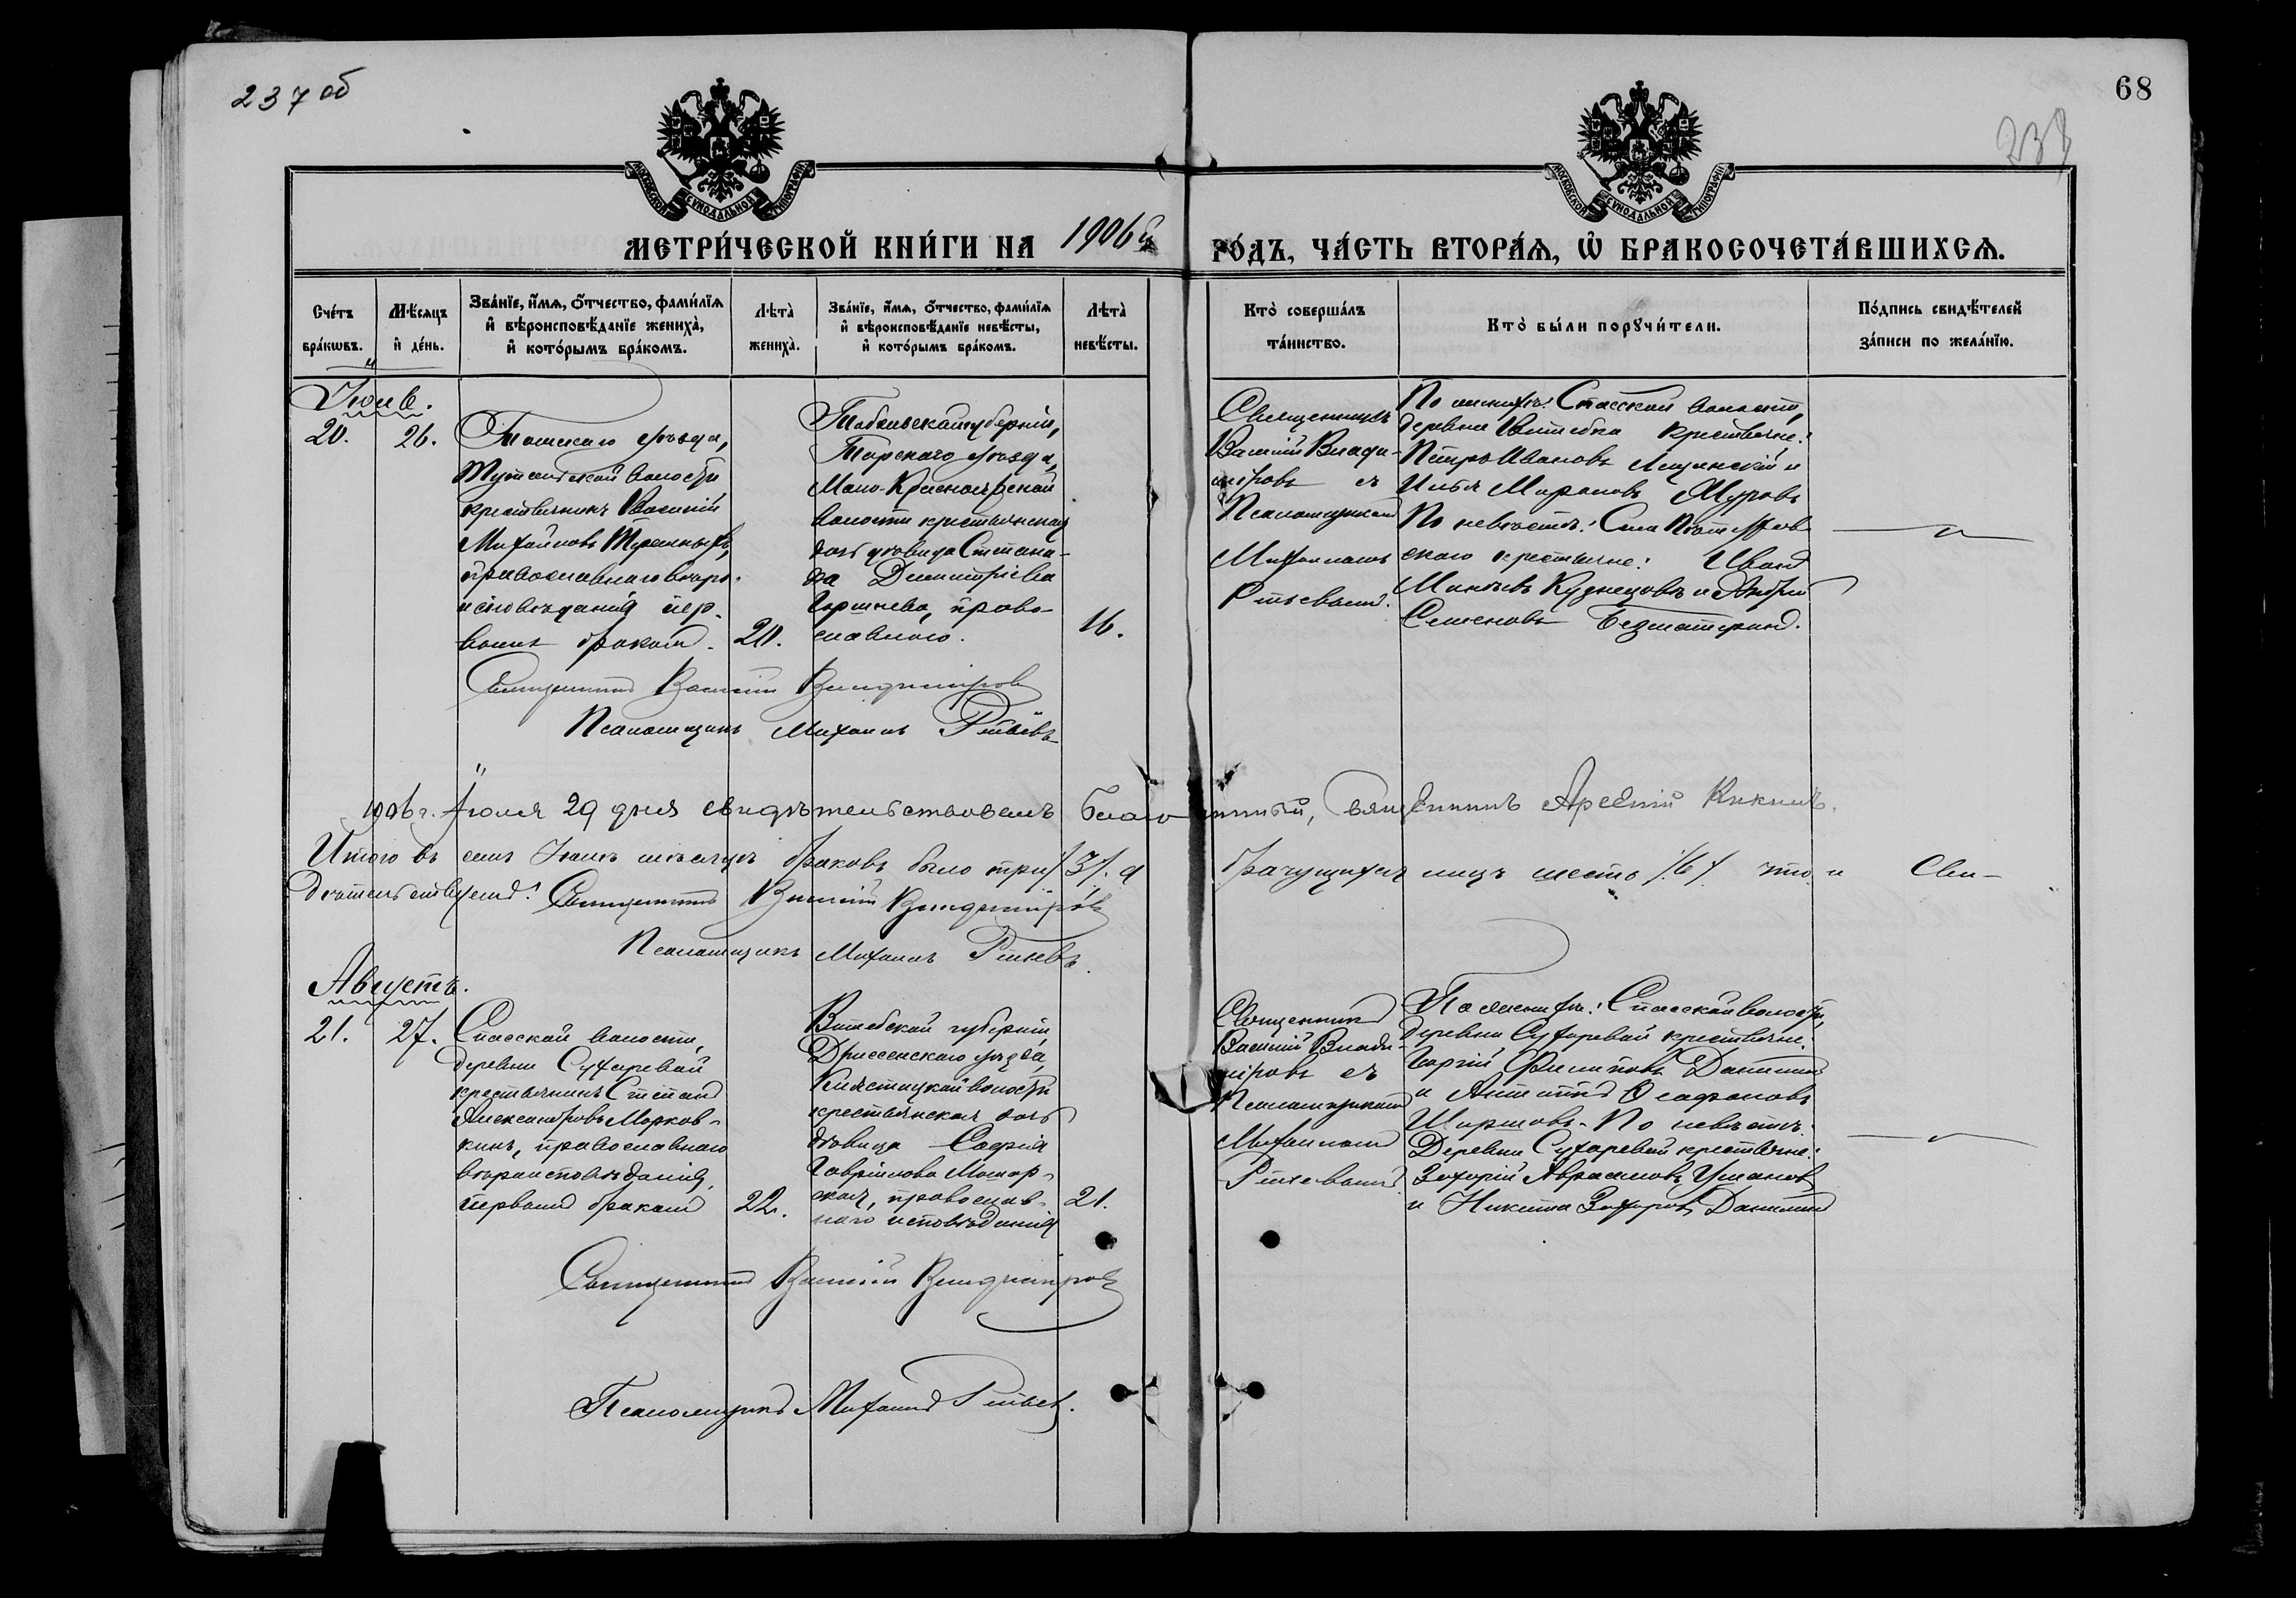 237 об
68
238
МОСКОВСКОЙ СѴНОДАЛЬНОЙ ТИПОГРАФІИ
МОСКОВСКОЙ СѴНОДАЛЬНОЙ ТИПОГРАФІИ
МЕТРИ́ЧЕСКОЙ КНИ́ГИ НА 1906й ГО́ДЪ, ЧА́СТЬ ВТОРА́Ѧ, Ѡ҆ БРАКОСОЧЕТА́ВШИХСѦ.
Сче́тъ
бра́кωвъ.
Мѣ́сѧцъ
и҆ де́нь.
Зва́нїе, и҆́мѧ, ѻ҆́тчество, фами́лїѧ
и҆ вѣроисповѣ́данїе жениха̀,
и҆ кото́рымъ бра́комъ.
Лѣта̀
жениха̀.
Зва́нїе, и҆́мѧ, ѻ҆́тчество, фами́лїѧ
и҆ вѣроисповѣ́данїе невѣ́сты,
и҆ кото́рымъ бра́комъ.
Лѣта̀
невѣ́сты.
Кто̀ соверша́лъ
та́инство.
Кто̀ бы́ли порꙋчи́тели.
По́дпись свидѣ́телей
за́писи по жела́нїю.
20.
26.
Томскаго уѣзда,
волости
крестьянинъ Василій
Михайловъ
православнаго вѣро-
исповѣданія пер-
вымъ бракомъ.
20.
Тобольской губерніи,
Тарскаго уѣзда,
Мало-Красноярской
волости крестьянская
дочь дѣвица Степани-
да Димитріева
Горшнева, право-
славнаго.
16.
Священникъ
Василій Влади-
міровъ съ
Псаломщикомъ
Михаиломъ
По женихѣ: Спасской волости,
деревни Витебка крестьяне:
Петръ Ивановъ и
Илья Муровъ
По невѣстѣ: Села
скаго крестьяне: Иванъ
Кузнецовъ и
Семеновъ
Священникъ Василій Владиміровъ
Псаломщикъ Михаилъ
1906 г. Іюля 29 дня свидѣтельствовалъ Благочинный, Священникъ Арсеній Кикинъ.
Итого въ семъ мѣсяцѣ браковъ было три /3/. а брачущихся лицъ шесть /6/ что и Сви-
дѣтельствуемъ: Священникъ Василій Владиміровъ
Псаломщикъ Михаилъ
Августъ.
21.
27.
Спасской волости,
деревни Сухаревой
крестьянинъ Степанъ
Александровъ Морков-
кинъ, православнаго
вѣроисповѣданія,
первымъ бракомъ
22.
Витебской губерніи,
Дриссенскаго уѣзда,
Клястицкой волости
крестьянская дочь
дѣвица Софія
Гавріилова
православ-
наго исповѣданія
21.
Священникъ
Василій Влади-
міровъ съ
Псаломщикомъ
Михаиломъ
По женихѣ: Спасской волости,
деревни Сухаревой крестьяне:
Георгій Филиповъ Данилинъ
и Антипъ
По невѣстѣ:
Деревни Сухаревой крестьяне:
Захарій Аврамовъ Усановъ
и Никита Захаровъ Данилинъ
Священникъ Василій Владиміровъ
Псаломщикъ Михаилъ